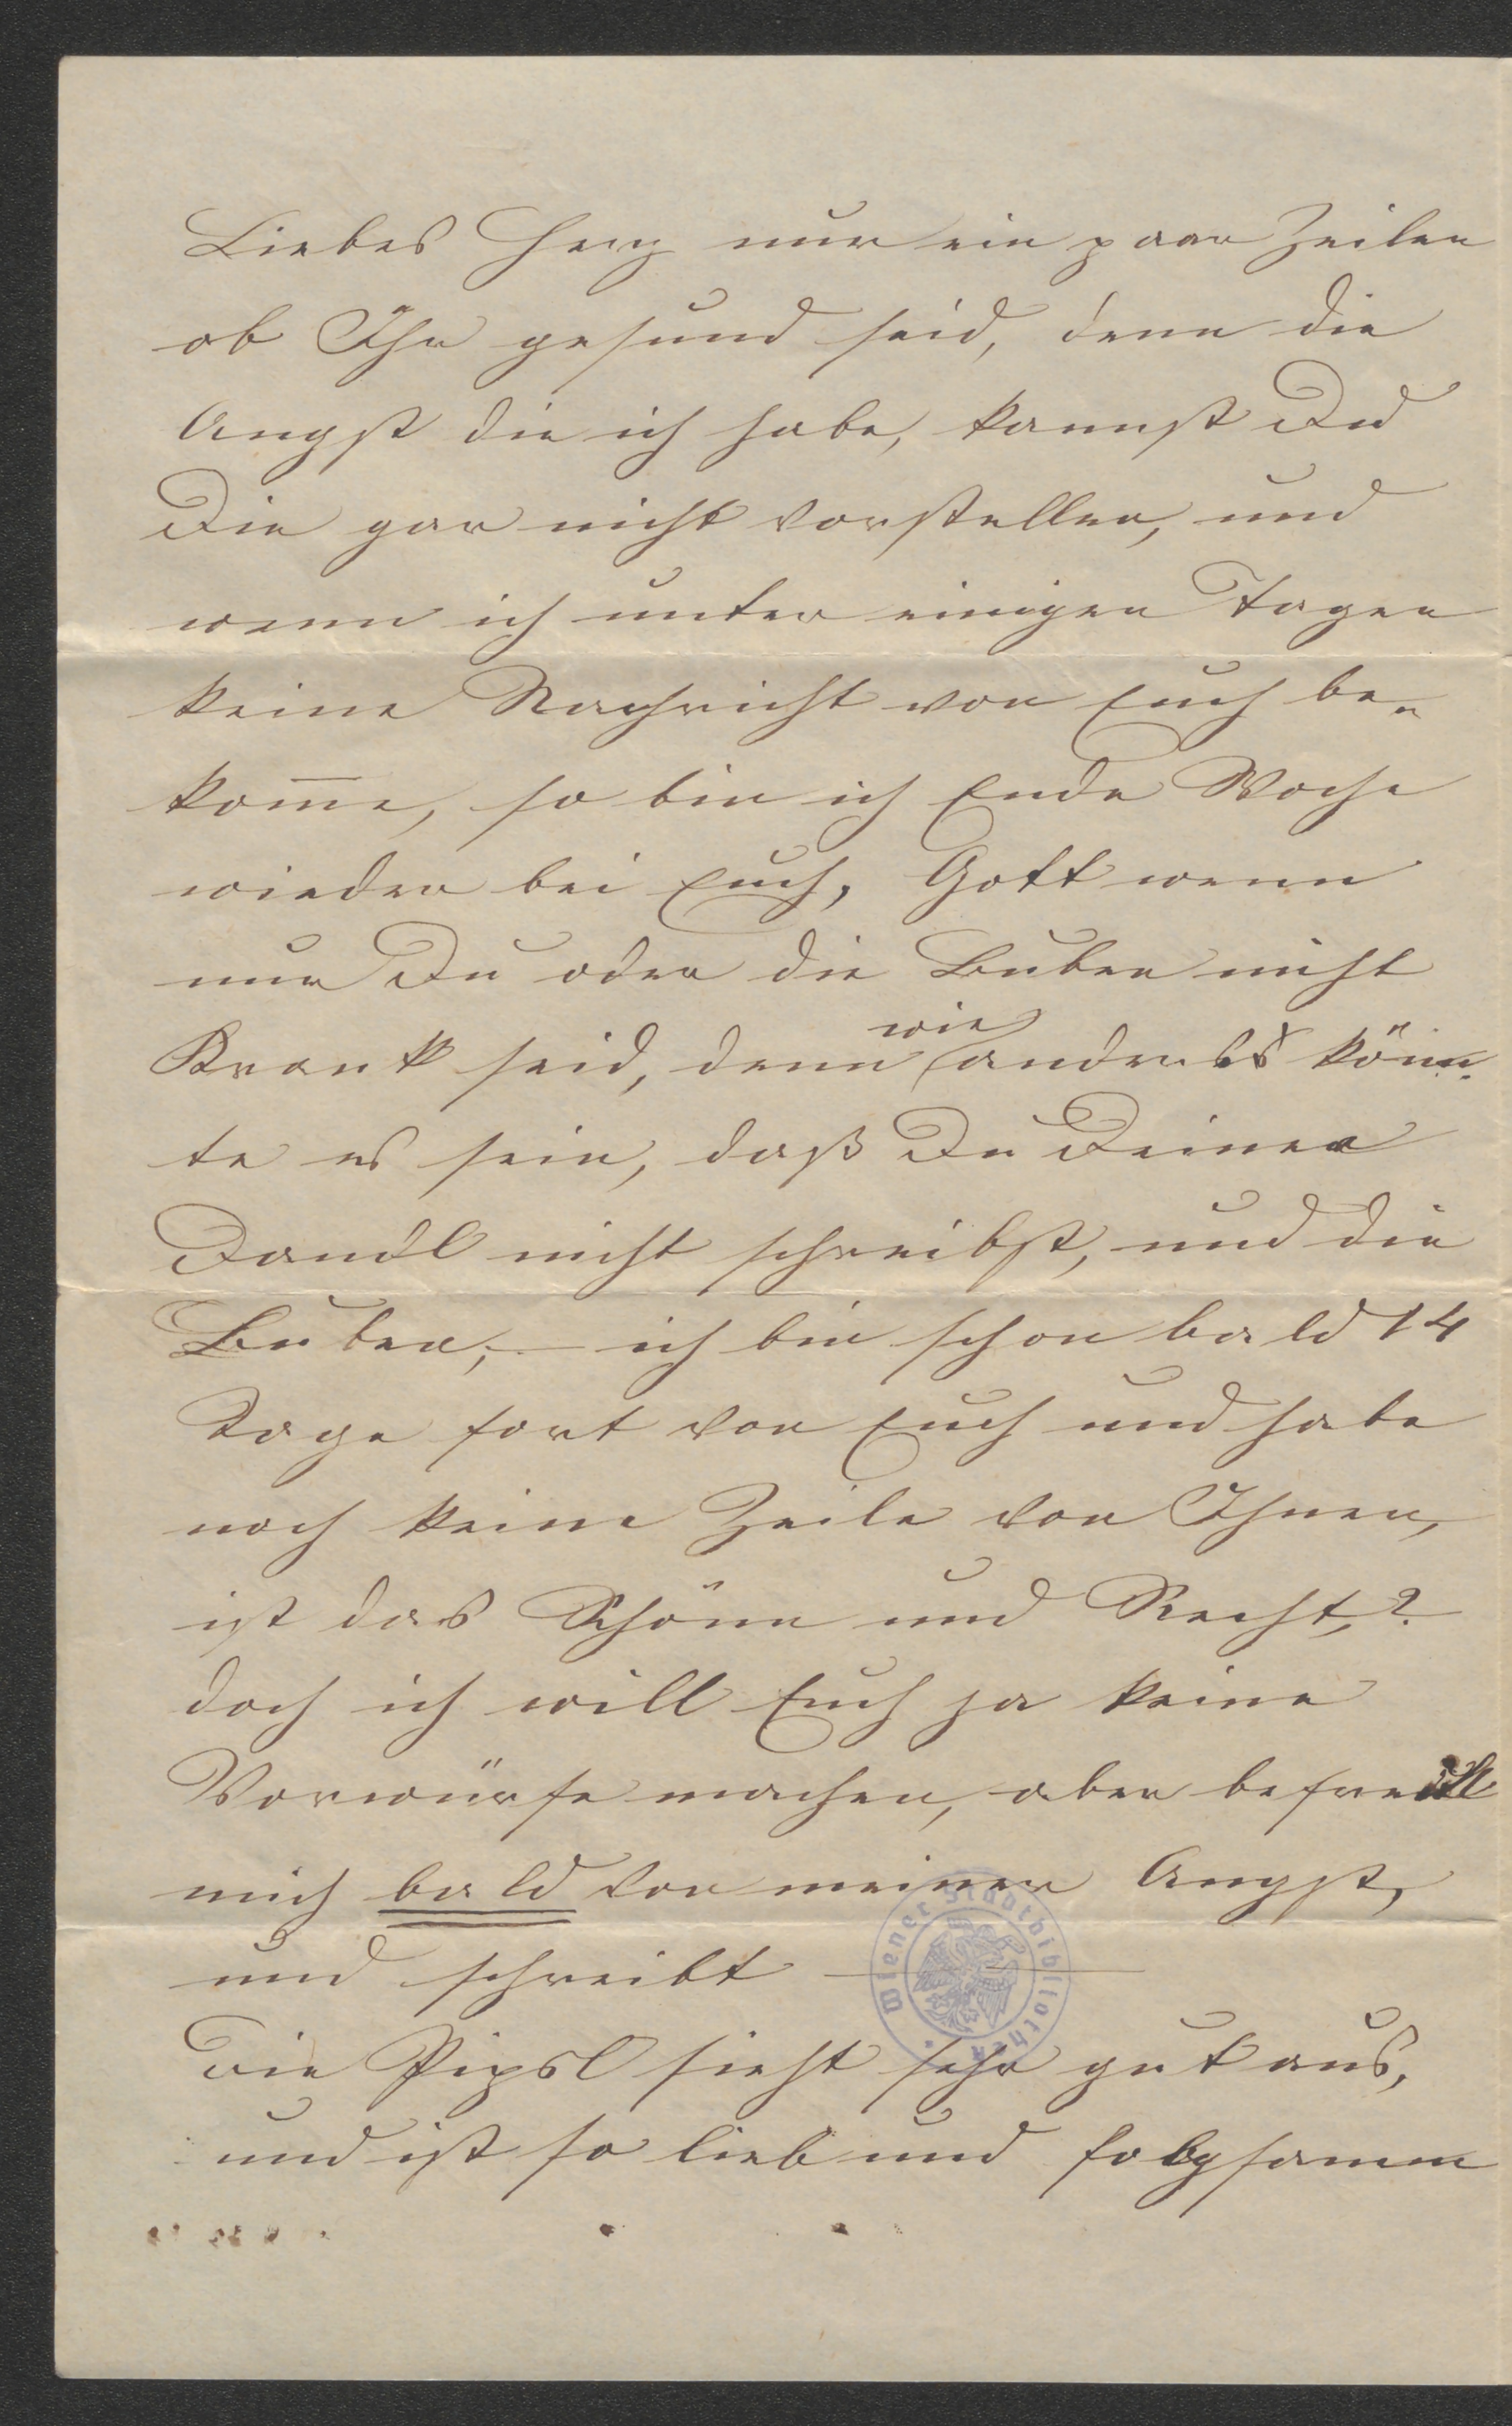 Liebes Herz nur ein paar Zeilen
ob Ihr gesund seid, denn die
Angst die ich habe, kannst Du
Dir gar nicht vorstellen, und
wenn ich unter einigen Tagen
keine Nachricht von Euch be„
kom̅e, so bin ich Ende Woche
wieder bei Euch, Gott wenn
nur Du oder die Buben nicht
Krank seid, denn wie anders könn„
te es sein, daß Du Deiner
Dandl nicht schreibst, und die
Buben, — ich bin schon bald 14
Tage fort von Euch und habe
noch keine Zeile von Ihnen,
ist das Schönn und Recht,?
doch ich will Euch ja keine
Vorwürfe machen, aber befreit
mich bald von meiner Angst,
und schreibt —
Die Pipsl sieht sehr gut aus,
und ist so lieb und folgsamm
Wiener Stadtbibliothek